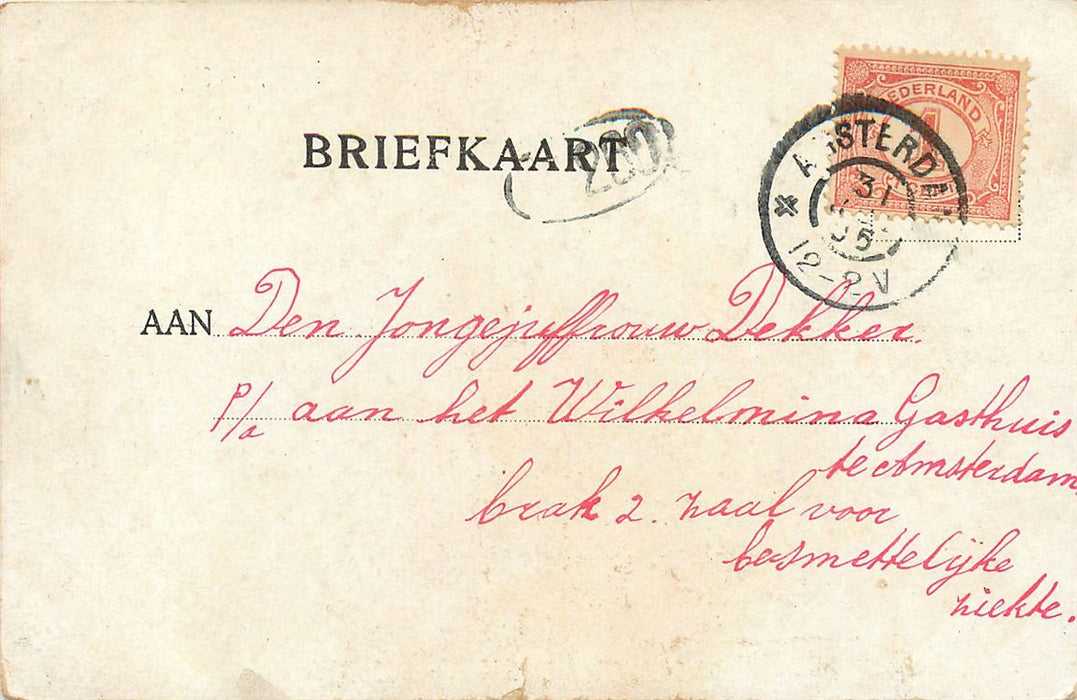 BRIEFKAART
200
NEDERLAND
1
AMSTERDA
31
12-2V
AAN Den Jongejuffrouw Dekker.
P/a aan het Wilhelmina Gasthuis
te Amsterdam,
brak 2. zaal voor
besmettelijke
ziekte.